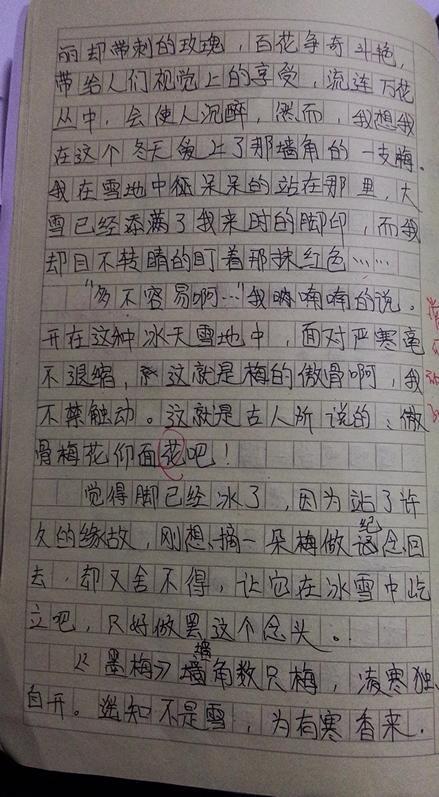 丽却带刺的玫瑰，百花争奇斗艳，
带给人们视觉上的享受，流连万花
丛中，会使人沉醉，然而，我想我
在这个冬天爱上了那墙角的一支梅。
我在雪地中征呆呆的站在那里，大
雪已经添满了我来时的脚印，而我
却目不转睛的盯着那抹红色……
“多不容易啊…”我喃喃的说。
开在这种冰天雪地中，面对严寒毫
不退缩，这就是梅的傲骨啊，我
不禁触动。这就是古人所说的、傲
骨梅花仰面花吧！
觉得脚已经冰了，因为站了许
久的缘故，刚想摘一朵梅做纪念回
去，却又舍不得，让它在冰雪中屹
立吧，只好做罢这个念头。
《墨梅》墙角数只梅，凌寒独
自开。遥知不是雪，为有寒香来．